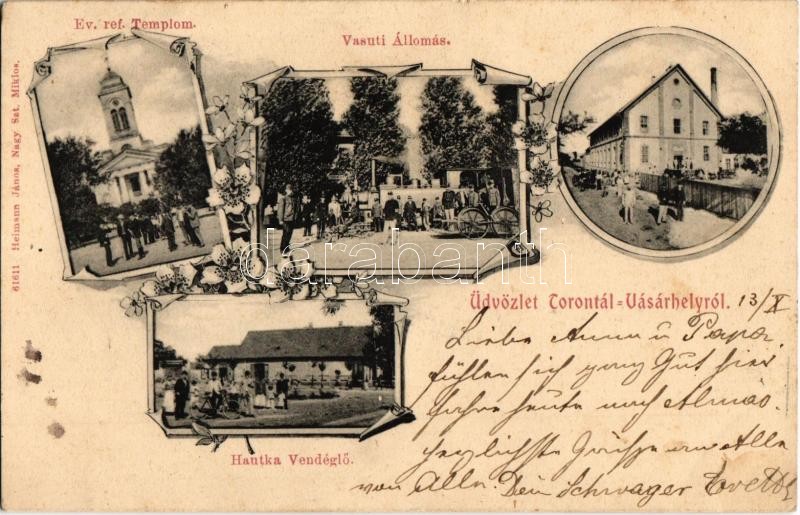 Ev. ref. Templom.
Vasuti Állomás.
61611 Heimann János, Nagy Szt. Miklos.
darabanth
Üdvözlet Torontál=Vásárhelyről. 13/X
Liebe Anna u Papa.
fühlen sich ganz Gut hier
fahre heute nach Almás.
herzlichste Grüsse an Alle
von Alle. Dein Schwager
Hautka Vendéglő.